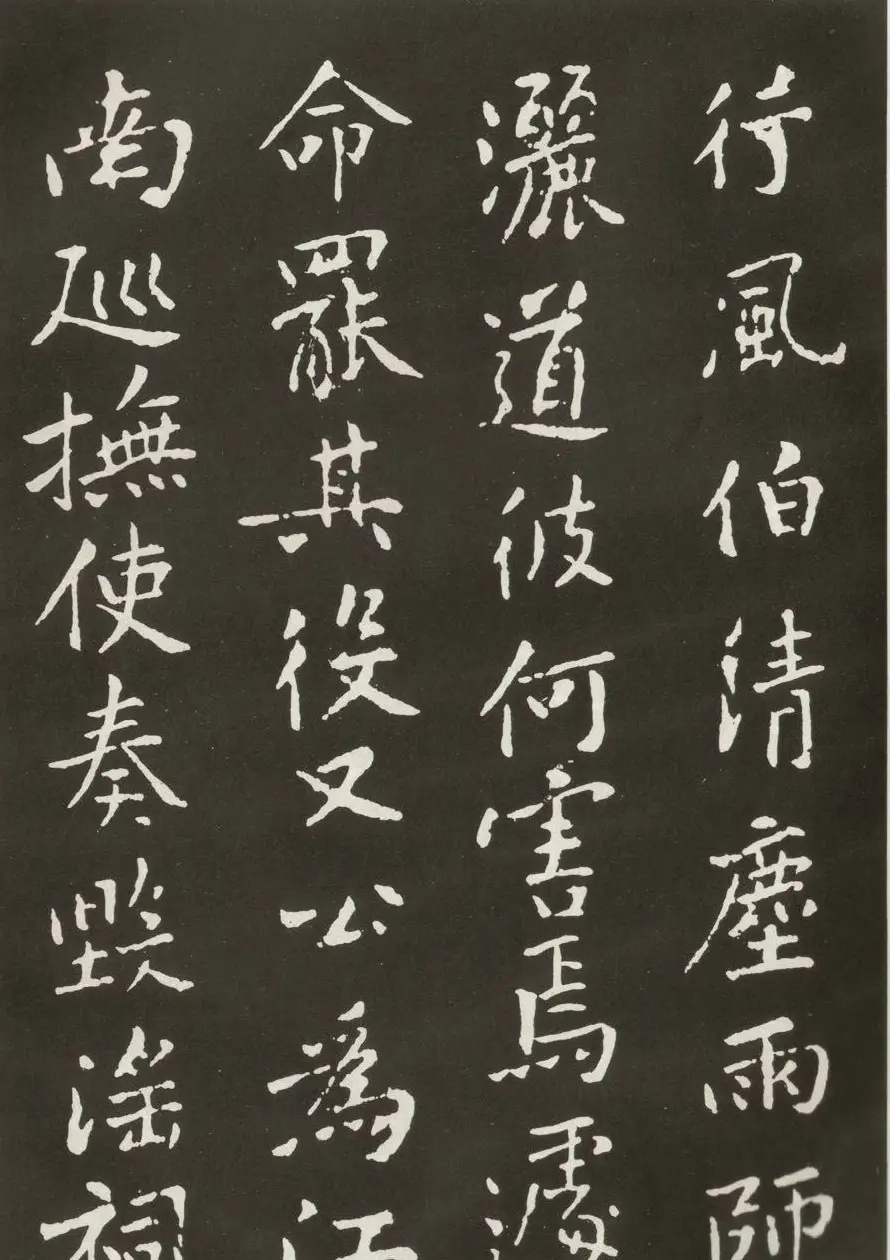 行風伯清塵雨師
灑道彼何害焉遽
命罷其役又公為江
南巡撫使奏毀淫祠